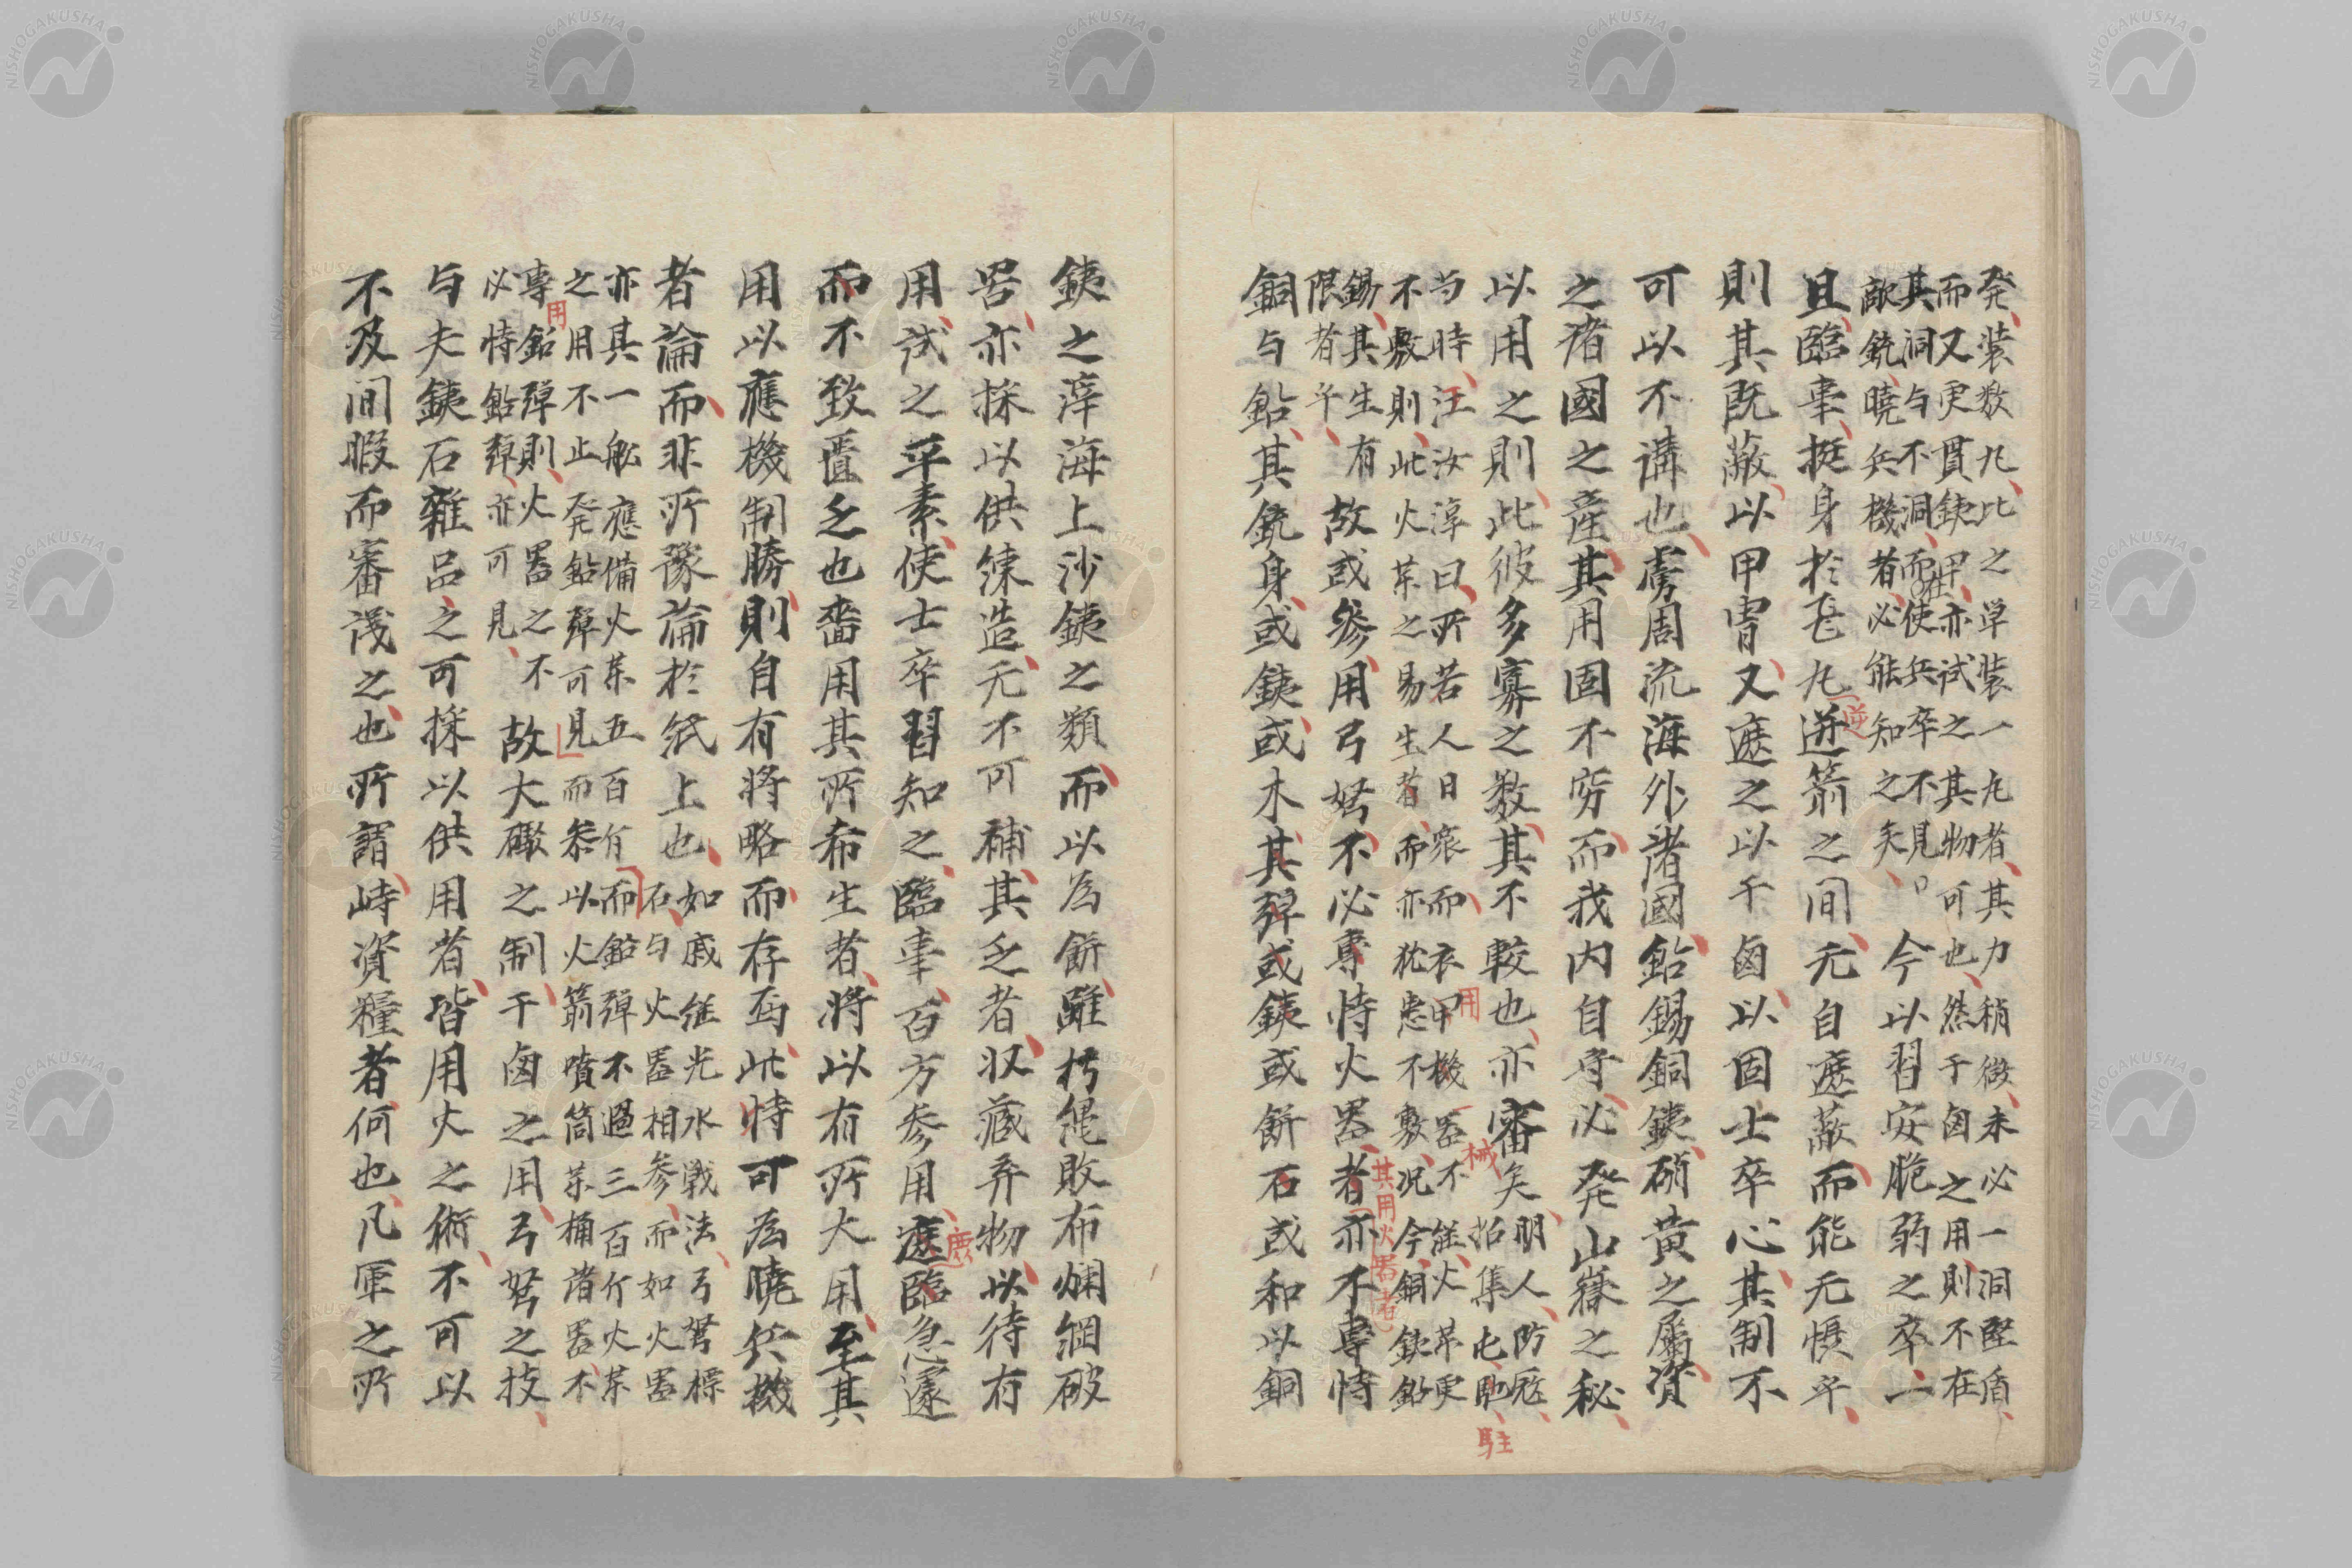 発装数丸比之单装一丸者其力稍微未必一洞堅盾
而又更貫銕甲亦試之其物可也然于鹵之用則不在
其洞与不洞而在使兵卒不見
敵銃曉兵機者必能知之矣
今以習安脆弱之卒一
且臨事挺身於毛丸迸箭之間无自遮蔽而能无愳乎
逆
則其既蔽以甲冑又遮之以干鹵以固士卒心其制不
可以不講也虜周流海外諸國鉛錫銅銕硝黄之属資
之渚國之産其用固不窮而我内自守必発山嶽之秘
以用之則此彼多寡之数其不較也亦審矣
明人防寇
招集屯馳
駐
芍時汪汝淳曰所若人日衆而衣甲機器不能火革更
用
械
不敷則此火茱之易生者而亦枕患不敷况今銅鈇鉛
錫其生有
限者乎
故或参用弓弩不必專恃火器者亦不專恃
其用火器者
銅与鉛其銃身或銕或木其弾或銕或餅石或和以銅
銕之滓海上沙銕之類而以為餅雖朽縄敗布爛綱破
器亦採以供練造无不可補其乏者収藏弃物以待有
用試之平素使士卒習知之臨事百方参用遮臨急遽
庶
而不致匱乏也啬用其所希生者将以有所大用至其
用以應機制勝則自有将略而存焉此恃可為曉兵機
者論而非所豫論於紙上也
如戚継光水戦法弓弩標
石与火器相参而如火器
亦其一舩應備火茱五百斤而鉛弾不過三百斤火茱
之用不止発鉛弾可見而参以火箭噴筒茱桶諸器不
用
專鉛弾則火器之不
必恃鉛弾亦可見
故大礟之制干鹵之用弓弩之技
与夫銕石雜品之可採以供用者皆用火之術不可以
不及间暇而審議之也所謂峙資糧者何也凡軍之所